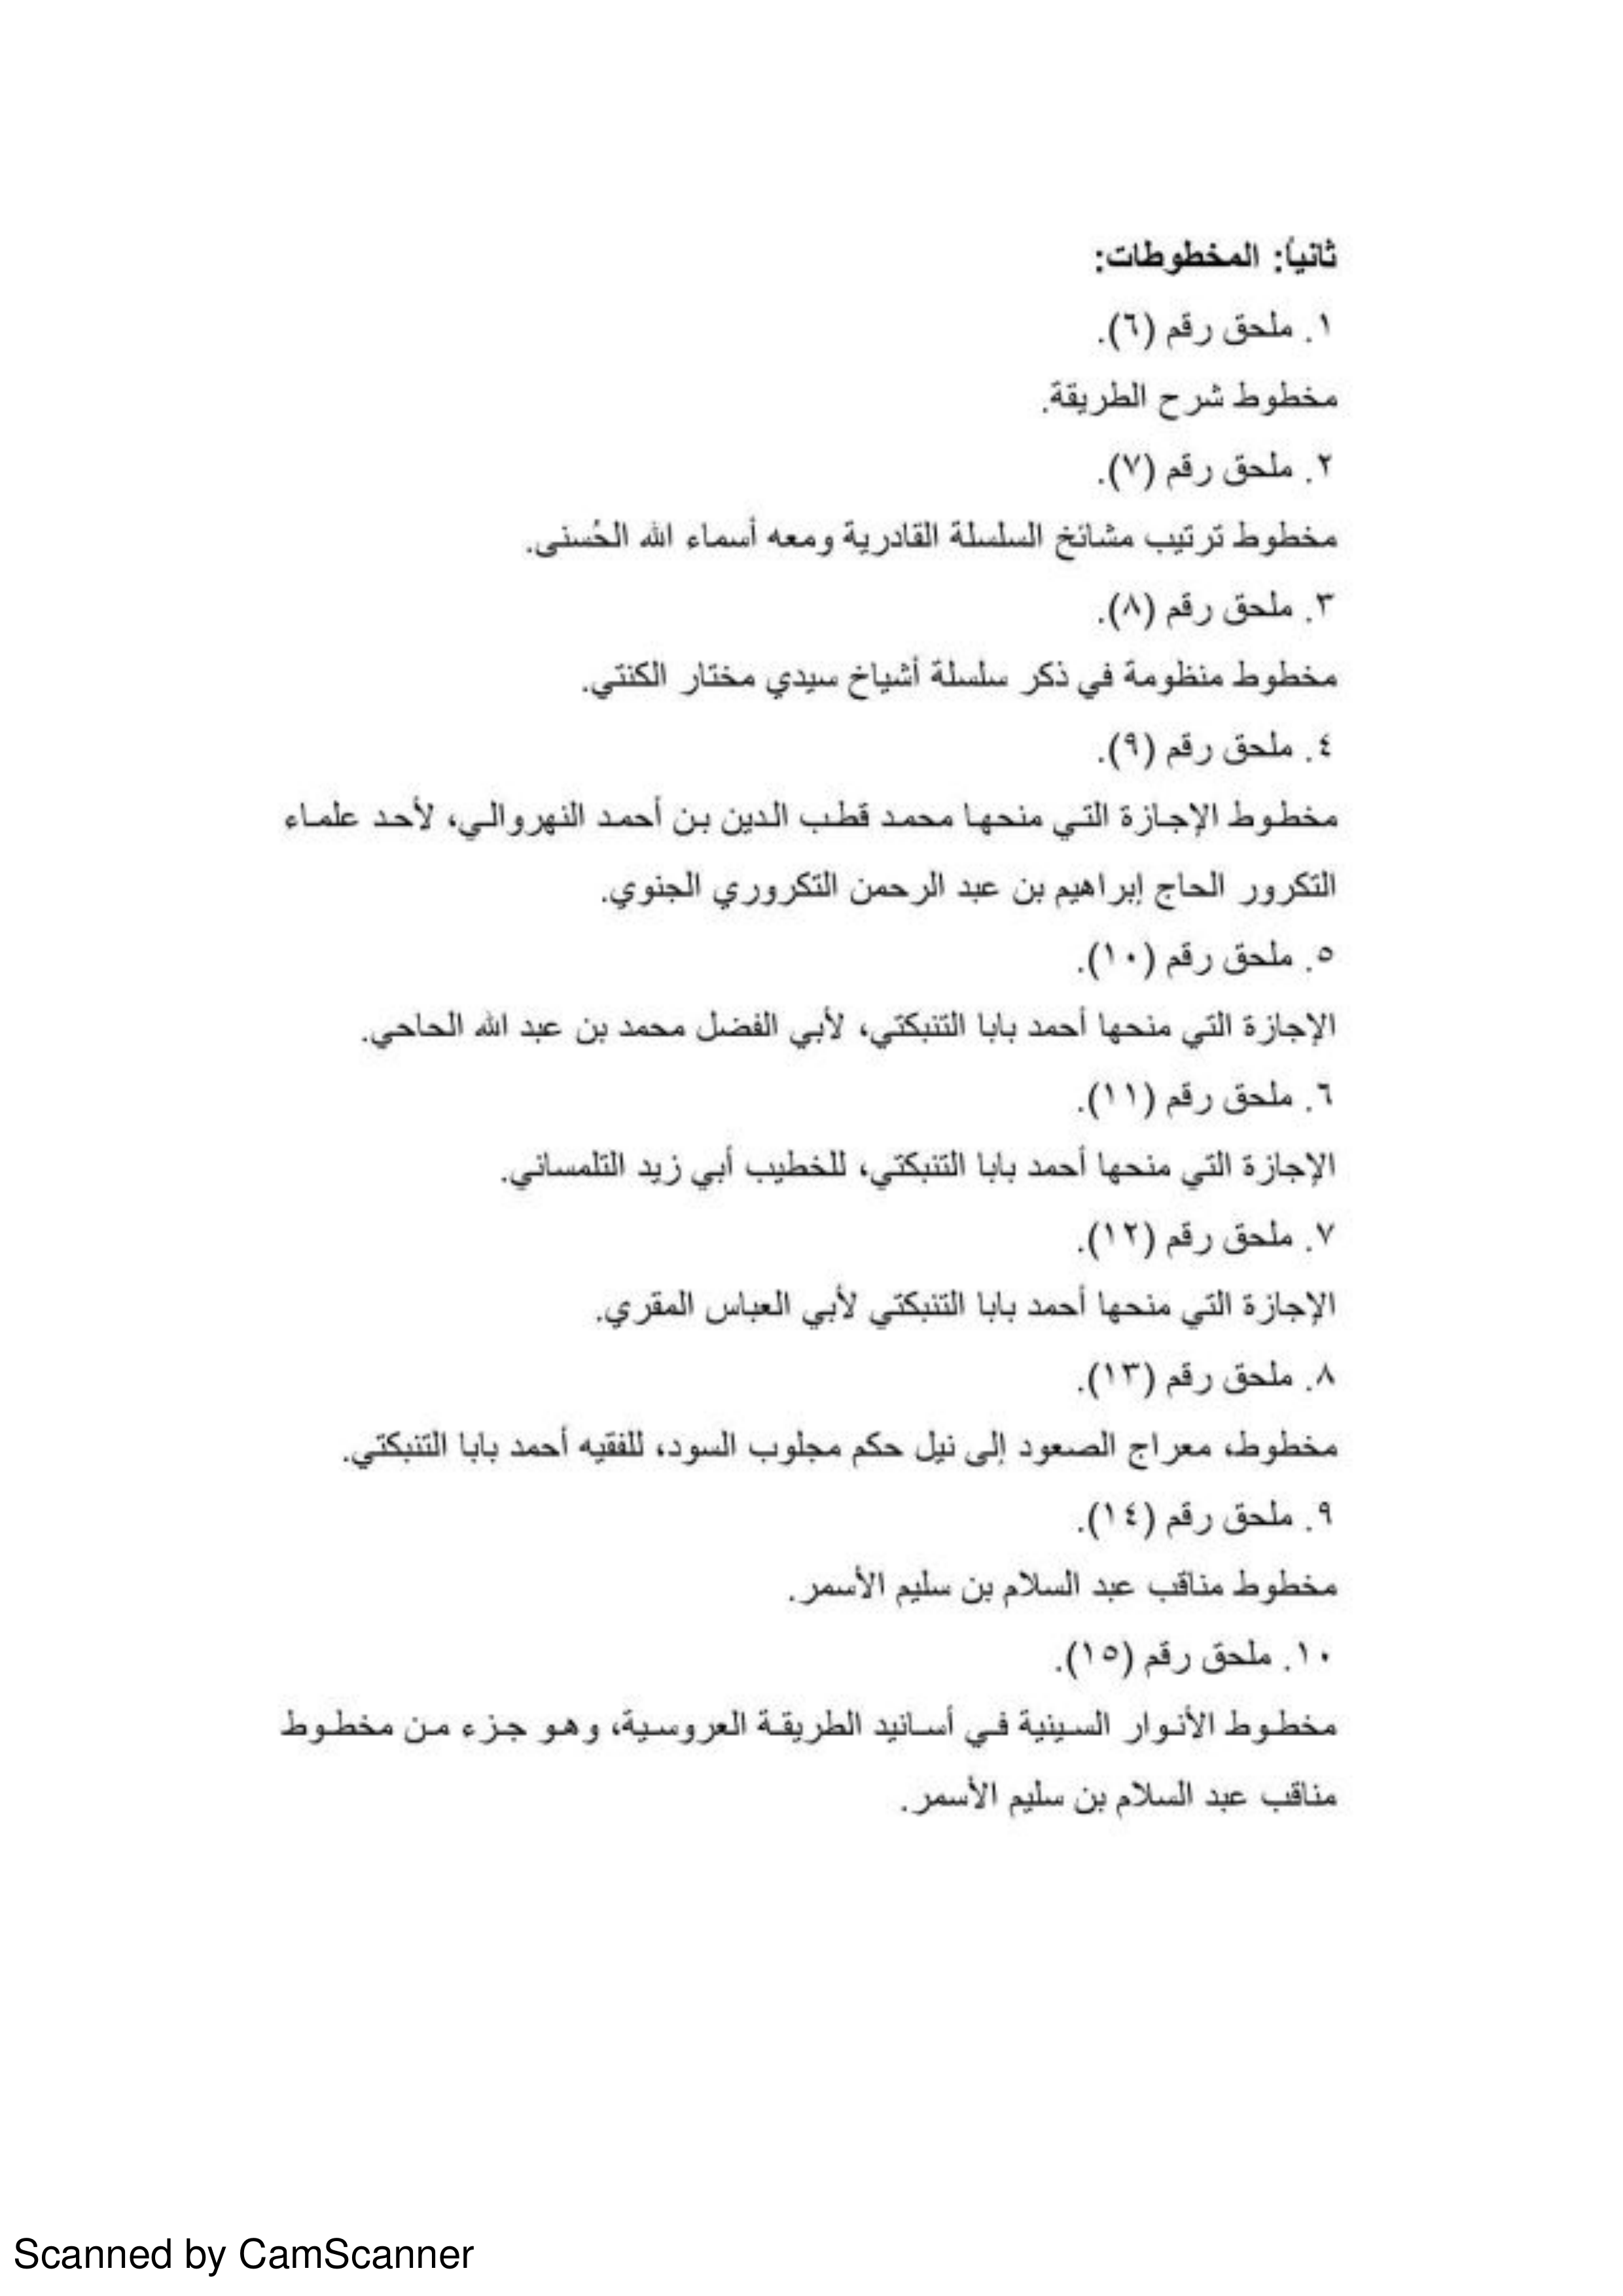 ثانياً: المخطوطات:
١. ملحق رقم (٦).
مخطوط شرح الطريقة.
٢. ملحق رقم (٧).
مخطوط ترتيب مشائخ السلسلة القادرية ومعه أسماء الله الحُسنى.
٣. ملحق رقم (٨).
مخطوط منظومة في ذكر سلسلة أشياخ سيدي مختار الكنتي.
٤. ملحق رقم (٩).
مخطوط الإجازة التي منحها محمد قطب الدين بن أحمد النهروالي، لأحد علماء
التكرور الحاج إبراهيم بن عبد الرحمن التكروري الجنوي.
٥. ملحق رقم (١٠).
الإجازة التي منحها أحمد بابا التنبكتي، لأبي الفضل محمد بن عبد الله الحاحي.
٦. ملحق رقم (١١).
الإجازة التي منحها أحمد بابا التنبكتي، للخطيب أبي زيد التلمساني.
٧. ملحق رقم (١٢).
الإجازة التي منحها أحمد بابا التنبكتي لأبي العباس المقري.
٨. ملحق رقم (١٣).
مخطوط، معراج الصعود إلى نيل حكم مجلوب السود، للفقيه أحمد بابا التنبكتي.
٩. ملحق رقم (١٤).
مخطوط مناقب عبد السلام بن سليم الأسمر.
١٠. ملحق رقم (١٥).
مخطوط الأنوار السينية في أسانيد الطريقة العروسية، وهو جزء من مخطوط
مناقب عبد السلام بن سليم الأسمر.
Scanned by CamScanner